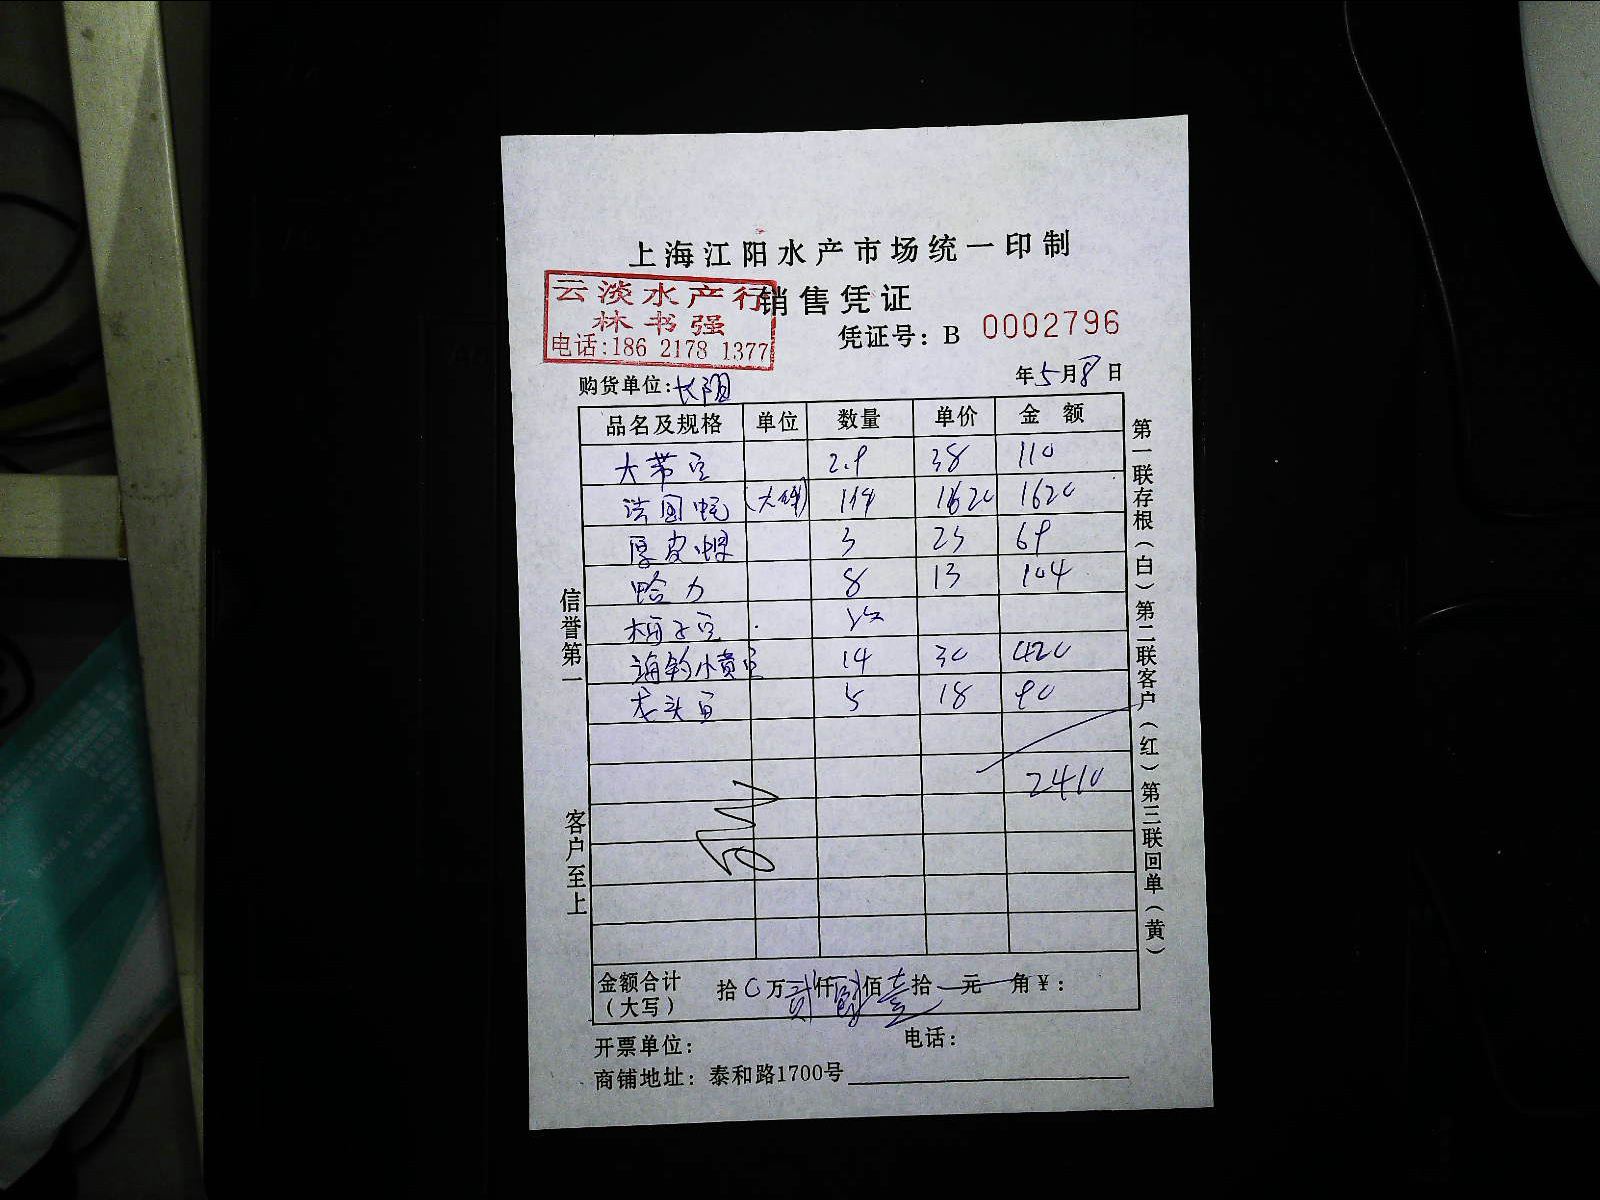 上海江阳水产市场统一印制
云淡水产行
销售凭证
林书强
电话:186 2178 1377
凭证号: B 0002796
购货单位:长阳
年5月8日
品名及规格 单位 数量 单价 金额
大带鱼 2.9 38 110
法国蛏 114 1620 1620
厚皮 3 23 69
哈力 8 13 104
梅子鱼
海钓小黄鱼 14 30 420
龙头鱼 5 18 90
2410
金额合计(大写) 拾0万贰仟肆佰壹拾元角¥:
开票单位: 电话:
商铺地址: 泰和路1700号
信誉第一
客户至上
第一联存根(白)第二联客户(红)第三联回单(黄)